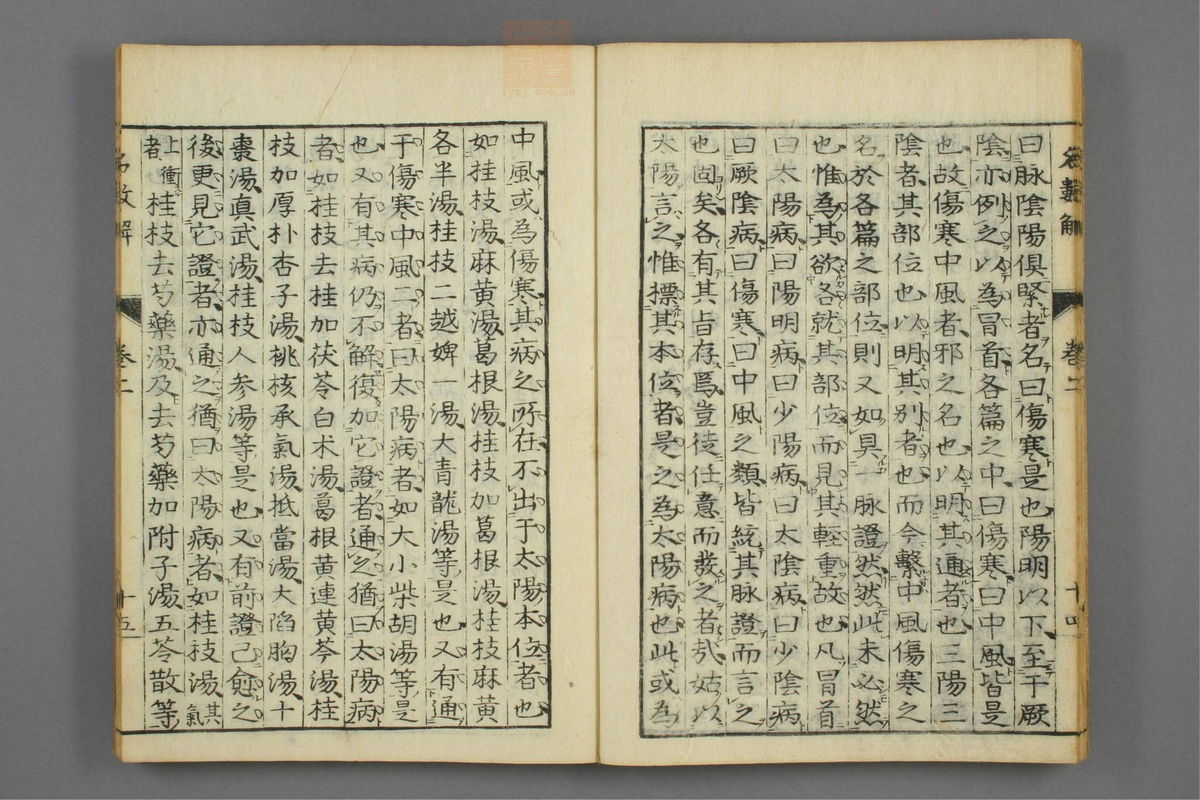 曰脉陰陽俱緊者名曰傷寒是也陽明以下至于厥
陰亦例之以為冒首各篇之中曰傷寒曰中風皆是
也故傷寒中風者邪之名也以明其通者也三陽三
陰者其部位也以明其別者也而今繫中風傷寒之
名於各篇之部位則又如具一脉證然然此未必然
也惟為其欲各就其部位而見其輕重故也凡冒首
曰太陽病曰陽明病曰少陽病曰太陰病曰少陰病
曰厥陰病曰傷寒曰中風之類皆統其脉證而言之
也固矣各有其旨存焉豈徒任意而發之者㢤姑以
太陽言之惟摽其本位者是之為太陽病也此或為
中風或為傷寒其病之所在不出于太陽本位者也
如桂枝湯麻黄湯葛根湯桂枝加葛根湯桂枝麻黄
各半湯桂枝二越婢一湯大青龍湯等是也又有通
于傷寒中風二者曰太陽病者如大小柴胡湯等是
也又有其病仍不解復加它證者通之猶曰太陽病
者如桂枝去桂加茯苓白术湯葛根黄連黄芩湯桂
枝加厚朴杏子湯桃核承氣湯抵當湯大陷胸湯十
棗湯真武湯桂枝人参湯等是也又有前證已愈之
後更見它證者亦通之猶曰太陽病者如桂枝湯其氣
上衝者桂枝去芍藥湯及去芍藥加附子湯五苓散等
卷二
十五
卷二